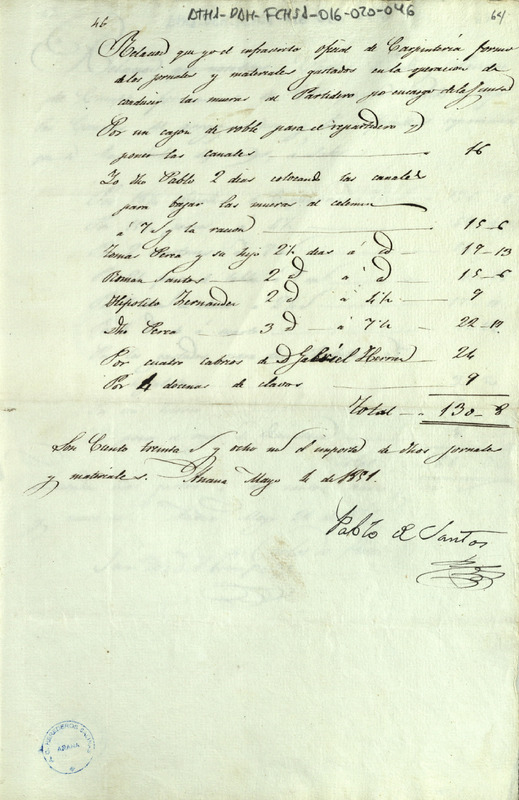 46 ATHA-DAH-FCHSA-016-020-046 64
Relacion que yo el infraescrito oficial de Carpintería formo
de los jornales y materiales gastados en la operacion de
conducir las mueras al Partidero por encargo de la Junta
Por un cajon de roble para el repartidero y
poner las canales 16
Yo dho Pablo 2 dias colocando las canales
para bajar las mueras al
á 7 y la racion 15-6
Tomas Perea y su hijo 2½ dias á id 17-13
Roman Santos 2 id á id 15-6
Hipolito Hernandez 2 id á 4½ 9
Dho Perea 3 id á 7½ 22-
Por cuatro cabrios de D Gabriel Herran 24
Por 4 docenas de clavos 9
Total 130-8
Son Ciento treinta y ocho ms el importe de dhos jornales
y materiales. Anana Mayo 4 de 1851.
Pablo R Santos
AÑANA